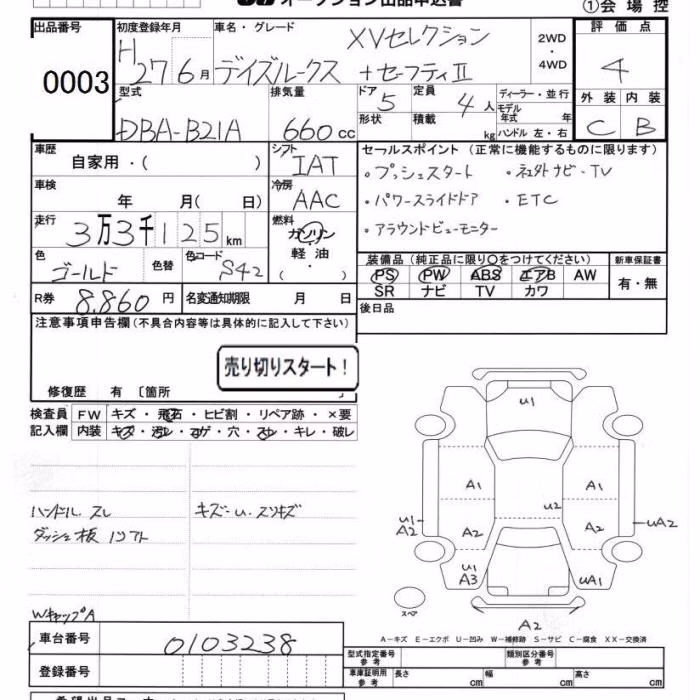 オークション出品申込書
①会場控
出品番号 0003
初度登録年月 H 27 6月
車名・グレード XVセレクション
デイズルークス +セーフティII
2WD・4WD
評価点 4
外装 C 内装 B
型式 DBA-B21A
排気量 660cc
ドア 5
形状
定員 4人
積載 kg
ディーラー・並行
モデル年式 年
ハンドル 左・右
車歴 自家用・( )
シフト IAT
車検 年 月( 日)
冷房 AAC
走行 3万3千125km
燃料 ガソリン・軽油・( )
色 ゴールド
色替
色コード S42
R券 8,860円
名変通知期限 月 日
セールスポイント (正常に機能するものに限ります)
・プッシュスタート ・社外ナビ・TV
・パワースライドドア ・ETC
・アラウンドビューモニター
装備品 (純正品に限り○をつけてください)
PS PW ABS エアB AW
SR ナビ TV カワ
新車保証書
有・無
後日品
注意事項申告欄(不具合内容等は具体的に記入して下さい)
売り切りスタート!
修復歴 有〔箇所 〕
検査員記入欄
FW キズ・飛石・ヒビ割・リペア跡・×要
内装 キズ・汚レ・コゲ・穴・スレ・キレ・破レ
ハンドル スレ
キズ-u. スリキズ
ダッシュ板
WキャップA
u1
A1 A1
u2
u1
A2
A2 A2
uA2
u1
A3
uA1
スペア
A2
A-キズ E-エクボ U-凹み W-補修跡 S-サビ C-腐食 XX-交換済
車台番号 0103238
登録番号
型式指定番号 参考
類別区分番号 参考
車庫証明用 参考
長さ cm
幅 cm
高さ cm